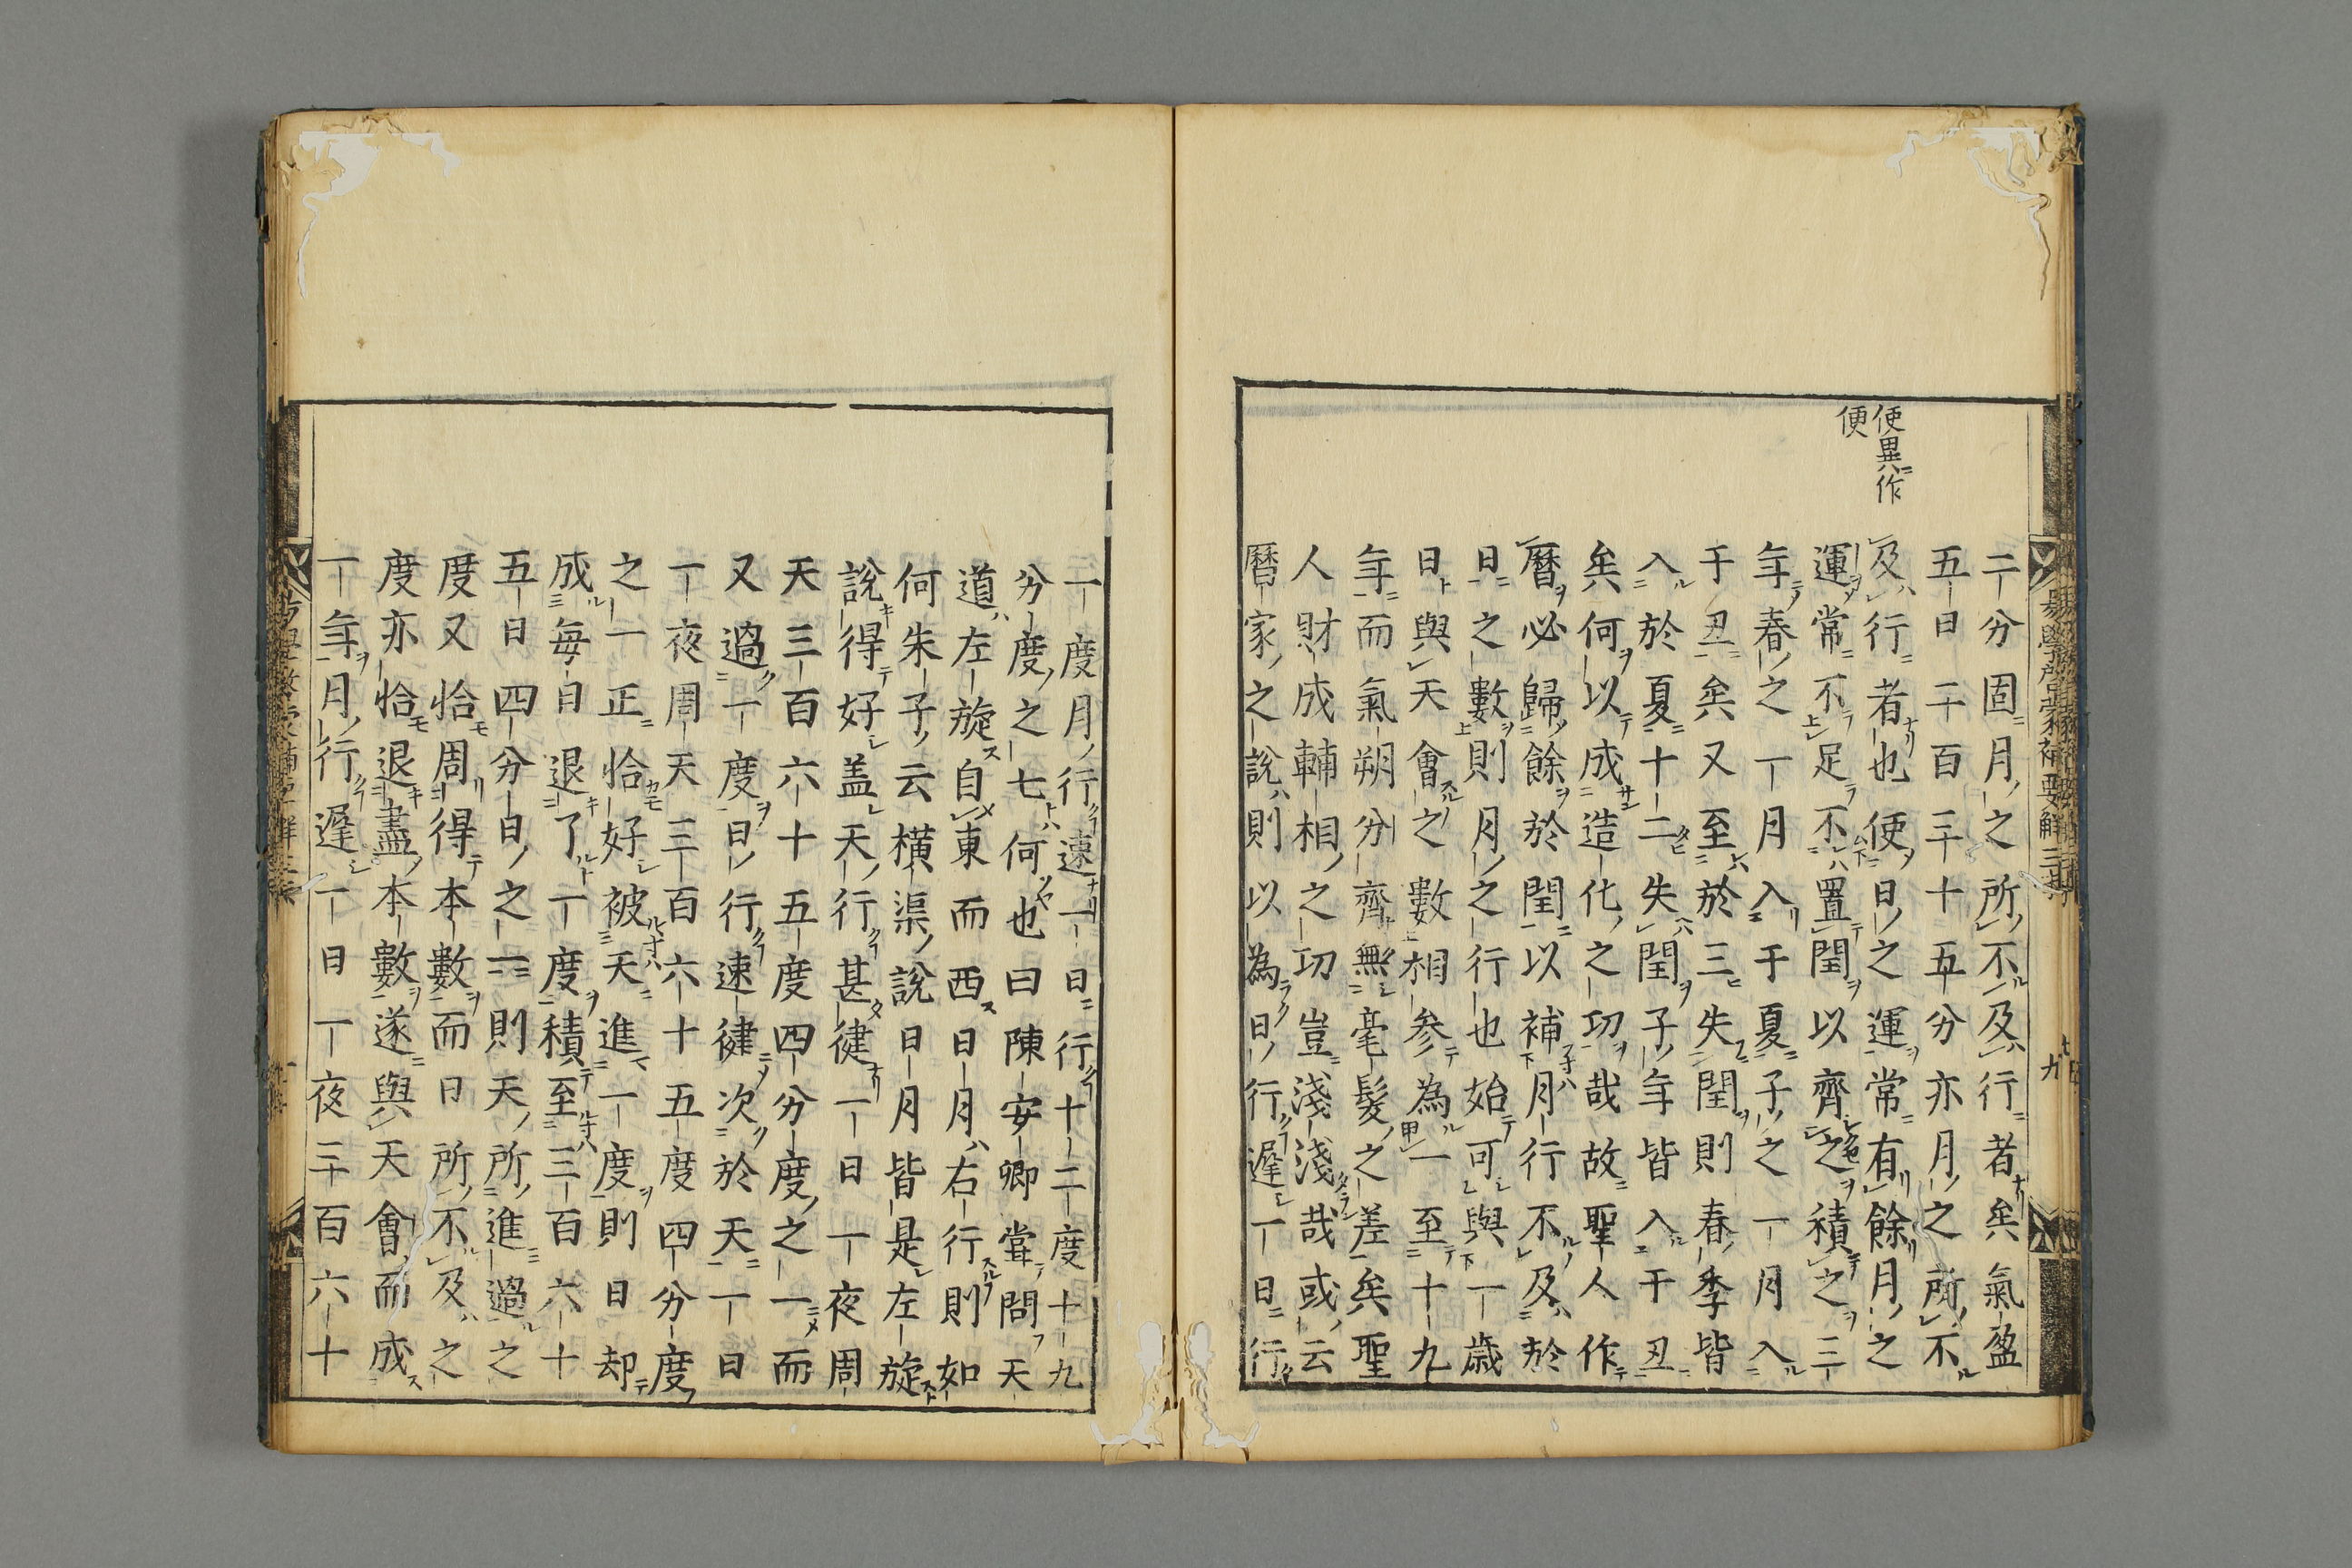 使異作
便
二分固月之所不及行者矣氣盈
五日二千百三十五分亦月之所不
及行者也便日之運常有餘月之
運常不足不置閏以齊之積之三
年春之一月入于夏子之一月入
于丑矣又至於三失閏則春季皆
入於夏十二失閏子年皆入于丑
矣何以成造化之功哉故聖人作
曆必歸餘於閏以補月行不及於
日之數則月之行也始可與一歲
日與天會之數相參為一至十九
年而氣朔分齊無毫髮之差矣聖
人財成輔相之功豈淺淺哉或云
曆家之說則以為日行遲一日行
一度月行速一日行十二度十九
分度之七何也曰陳安卿嘗問天
道左旋自東而西日月右行則如
何朱子云橫渠說日月皆是左旋
說得好盖天行甚健一日一夜周
天三百六十五度四分度之一而
又過一度日行速健次於天一日
一夜周天三百六十五度四分度
之一正恰好被天進一度則日却
成每日退了一度積至三百六十
五日四分日之一則天所進過之
度又恰周得本數而日所不及之
度亦恰退盡本數遂與天會而成
一年月行遲一日一夜三百六十